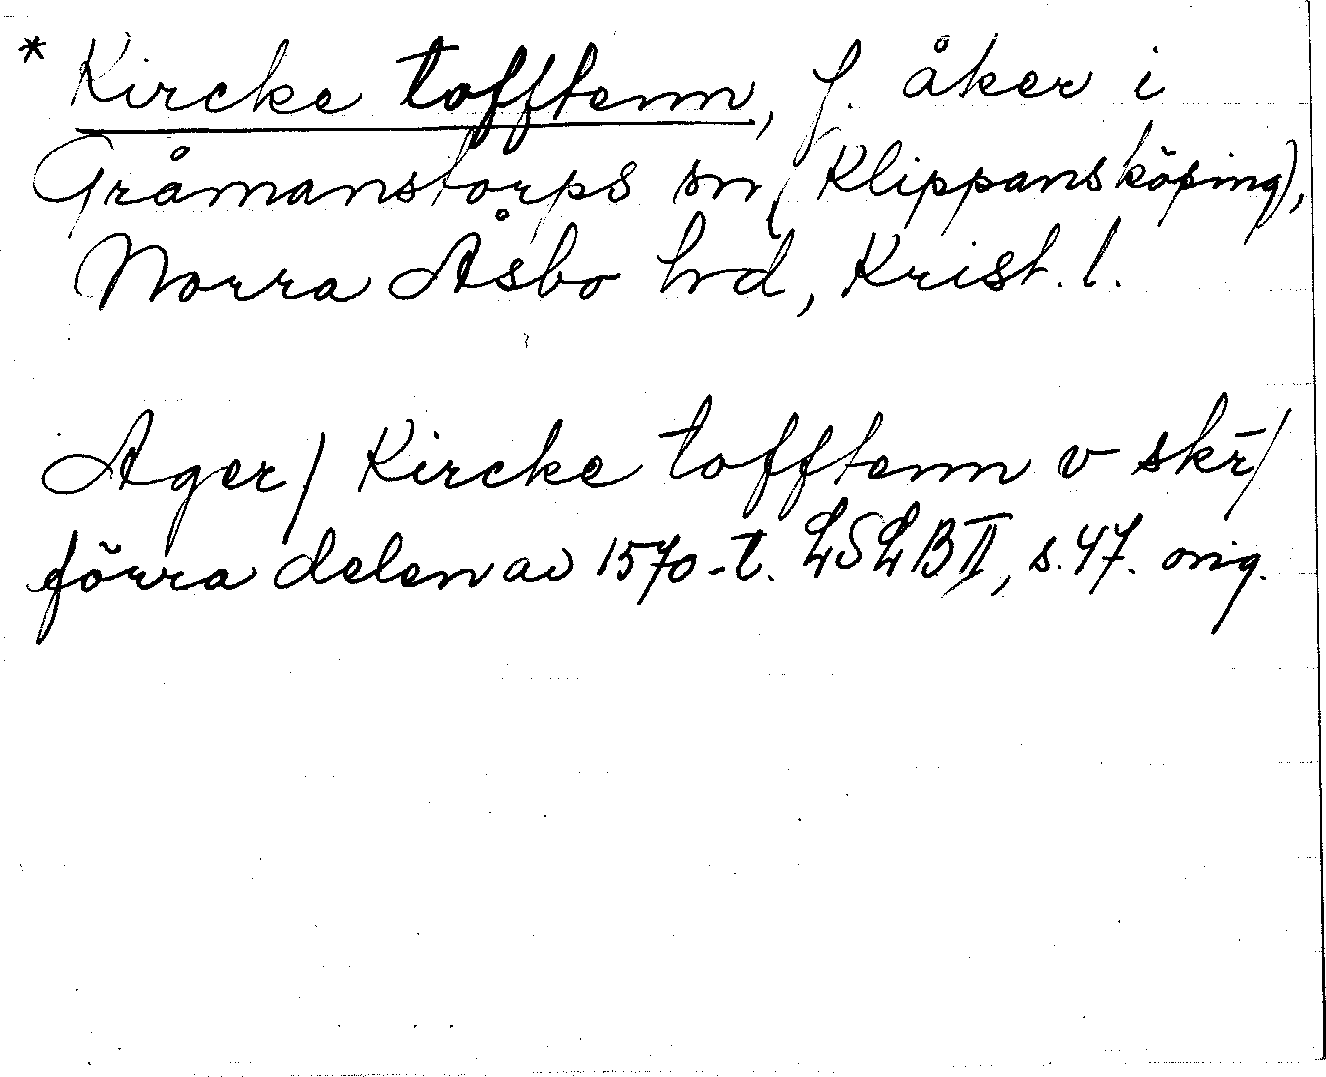 * Kircke tofftenn, f. åker i
Gråmanstorps sn (Klippans köping),
Norra Åsbo hrd, Krist. l.
Ager/ Kircke tofftenn v skr̄/
förra delen av 1570-t. LSLB II, s. 47. orig.